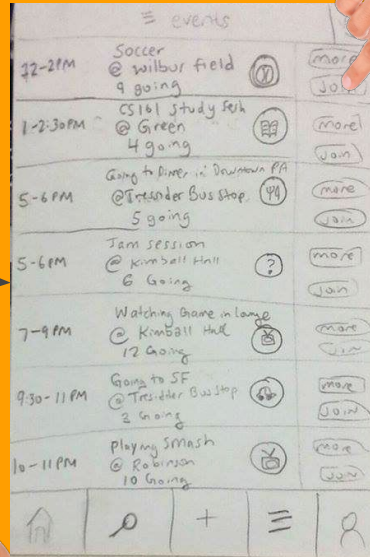 events
12-2PM
Soccer
@ wilbur field
9 going
more
join
1-2:30PM
CS161 study sesh
@ Green
4 going
more
Join
5-6PM
Going to Dinner in Downtown PA
@Tresidder Bus Stop
5 going
more
Join
5-6PM
Jam session
@ Kimball Hall
6 Going
?
more
Join
7-9PM
Watching Game in Lounge
@ Kimball Hall
12 Going
more
Join
9:30-11PM
Going to SF
@ Tresidder Bus Stop
3 Going
more
JOIN
10-11PM
Playing Smash
@ Robinson
10 Going
more
JOIN